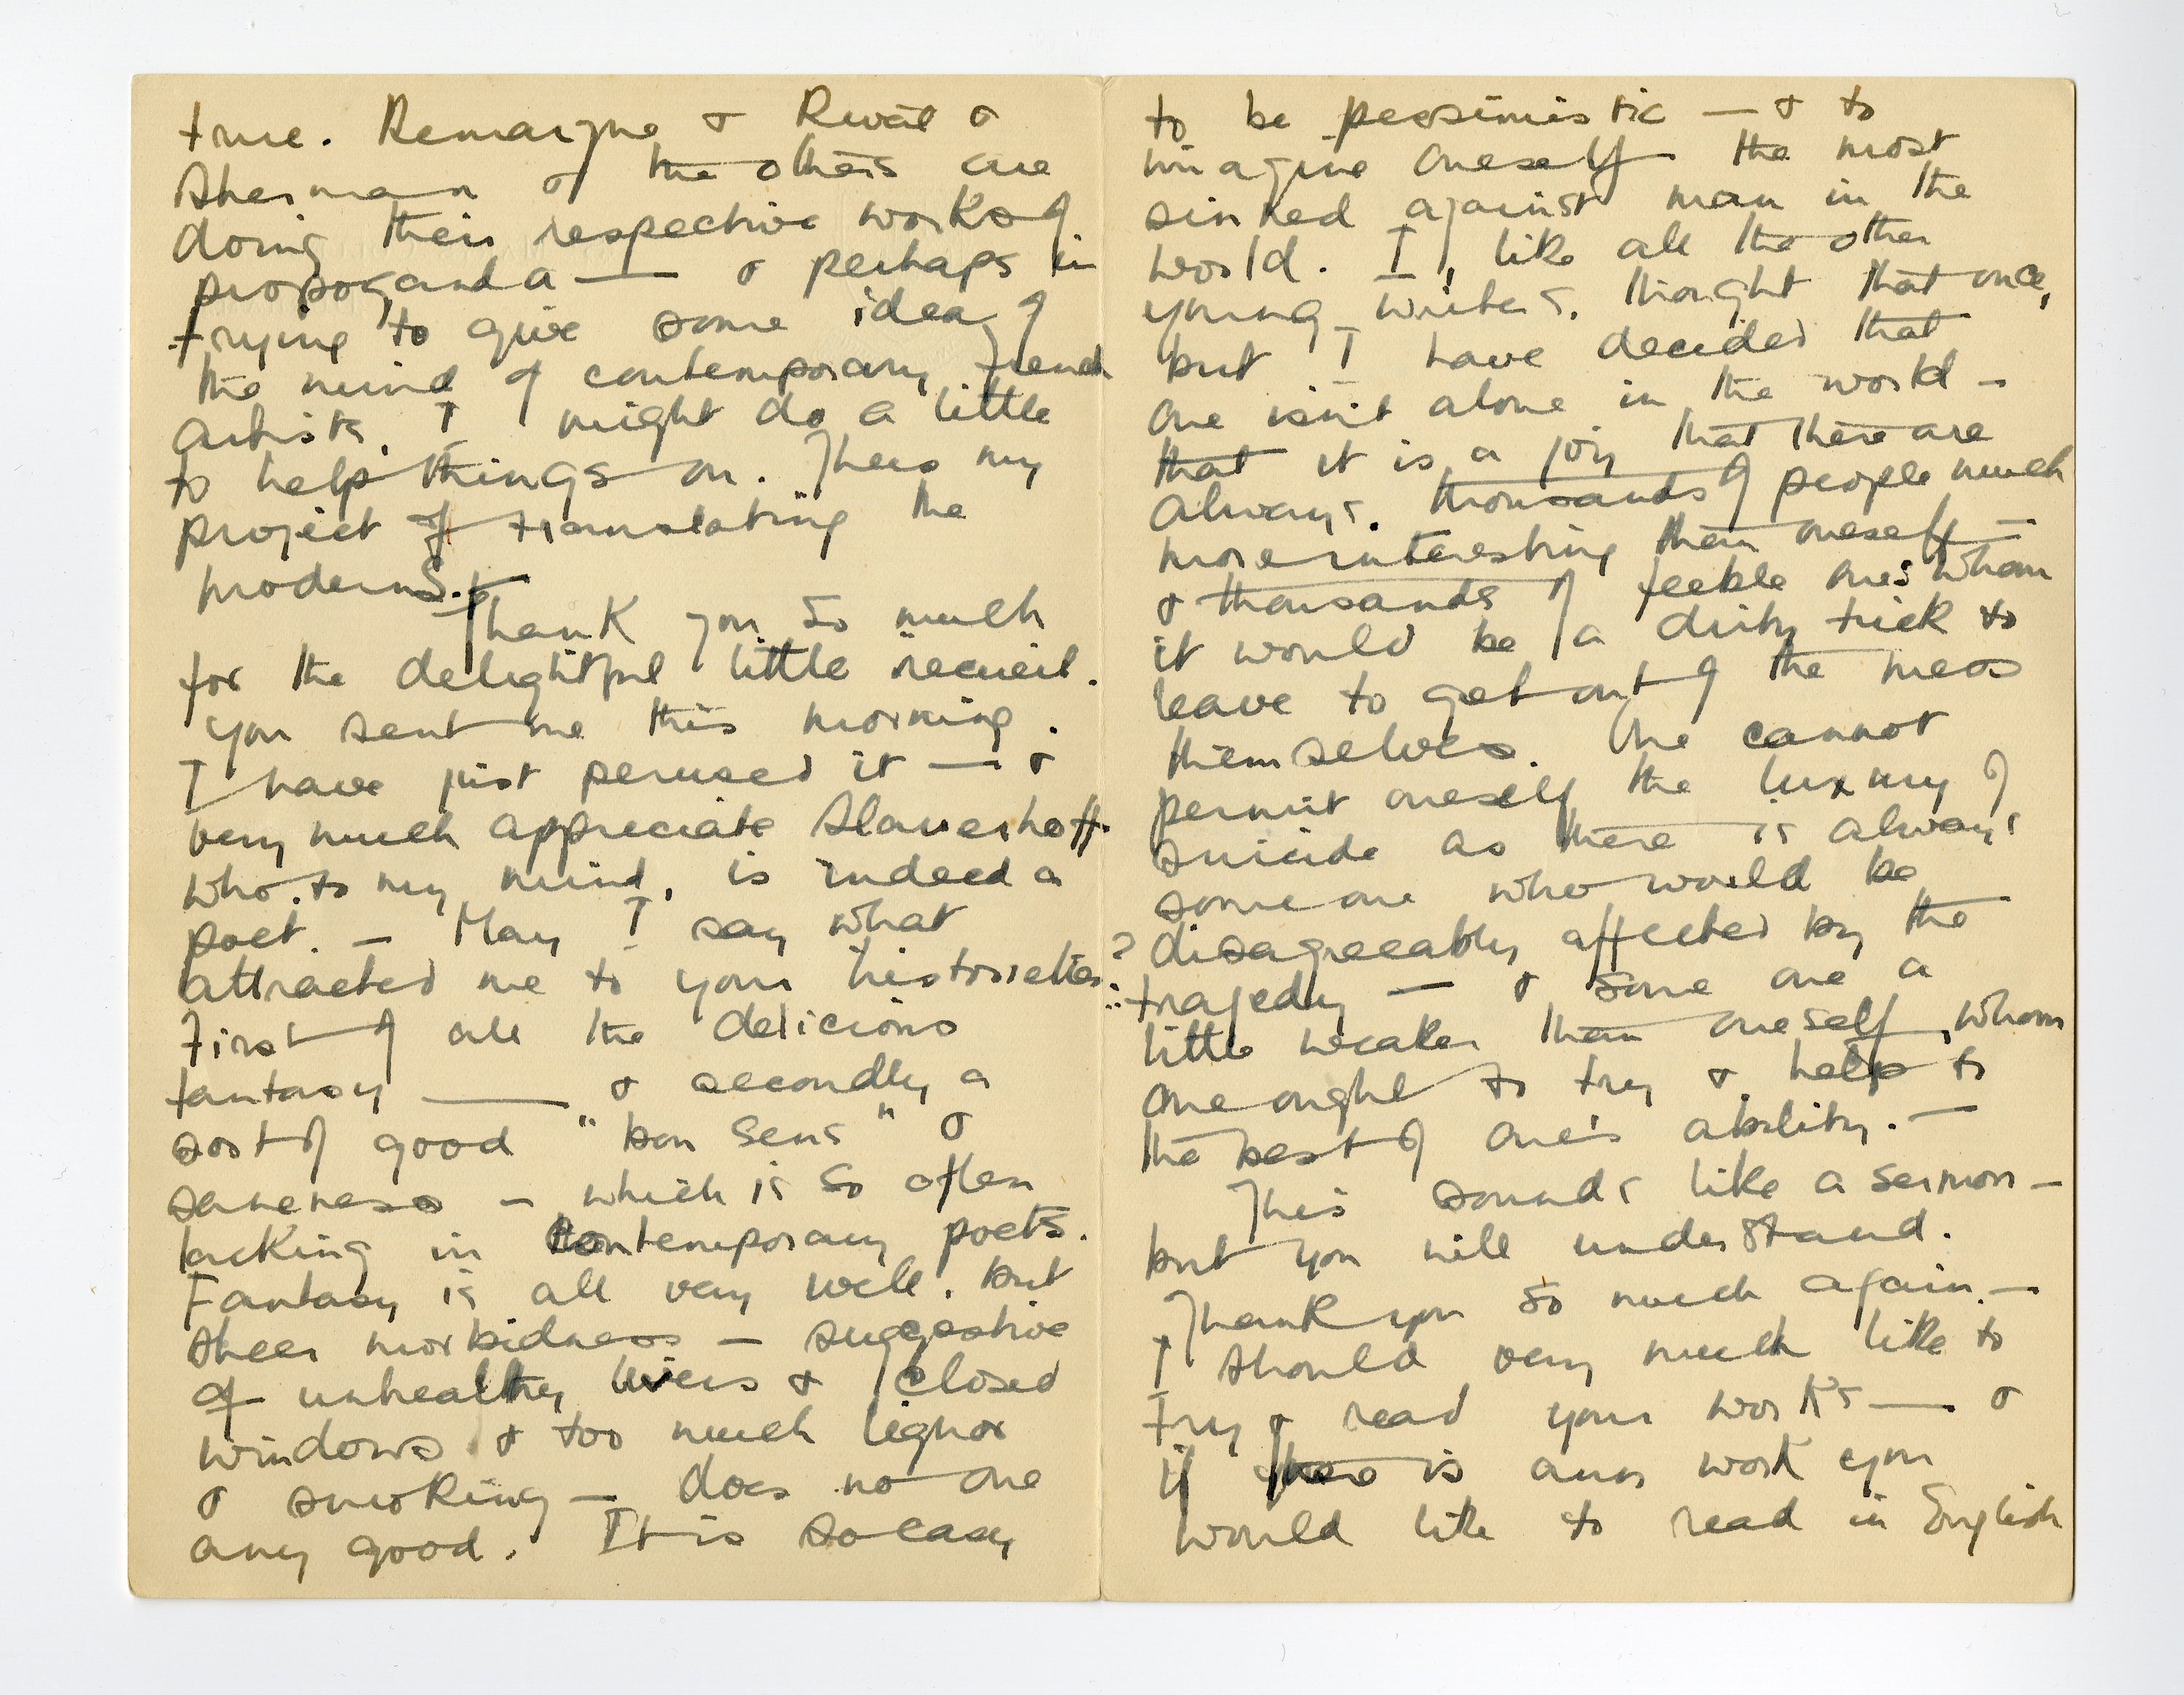 true. Remarque & &
Sherman & the others are
doing their respective works of
propoganda — & perhaps in
trying to give some idea of
the mind of contemporary French
artists, I might do a little
to help things on. Thus my
project of translating the
moderns.
Thank you so much
for the delightful little recueil.
you sent me this morning.
I have just perused it — &
very much appreciate Slauerhoff
who to my mind, is indeed a
poet. — May I say what
attracted me to your historiettes?
First of all the delicious
fantasy — & secondly a
sort of good "bon sens" &
saneness — which is so often
lacking in contemporary poets.
Fantasy is all very well, but
sheer morbidness — suggestive
of unhealthy livers & closed
windows & too much liquor
& smoking — does no one
any good. It is so easy
to be pessimistic — & to
imagine oneself the most
sinned against man in the
world. I, like all the other
young writers, thought that once,
but I have decided that
one isn't alone in the world —
that it is a joy that there are
always thousands of people much
more interesting than oneself —
& thousands of feeble ones whom
it would be a dirty trick to
leave to get out of the mess
themselves. One cannot
permit oneself the luxury of
suicide as there is always
someone who would be
disagreeably affected by the
tragedy — & some one a
little weaker than oneself, whom
one ought to try & help to
the best of one's ability. —
This sounds like a sermon —
but you will understand.
Thank you so much again. —
I should very much like to
try & read your works — &
if there is any work you
would like to read in English